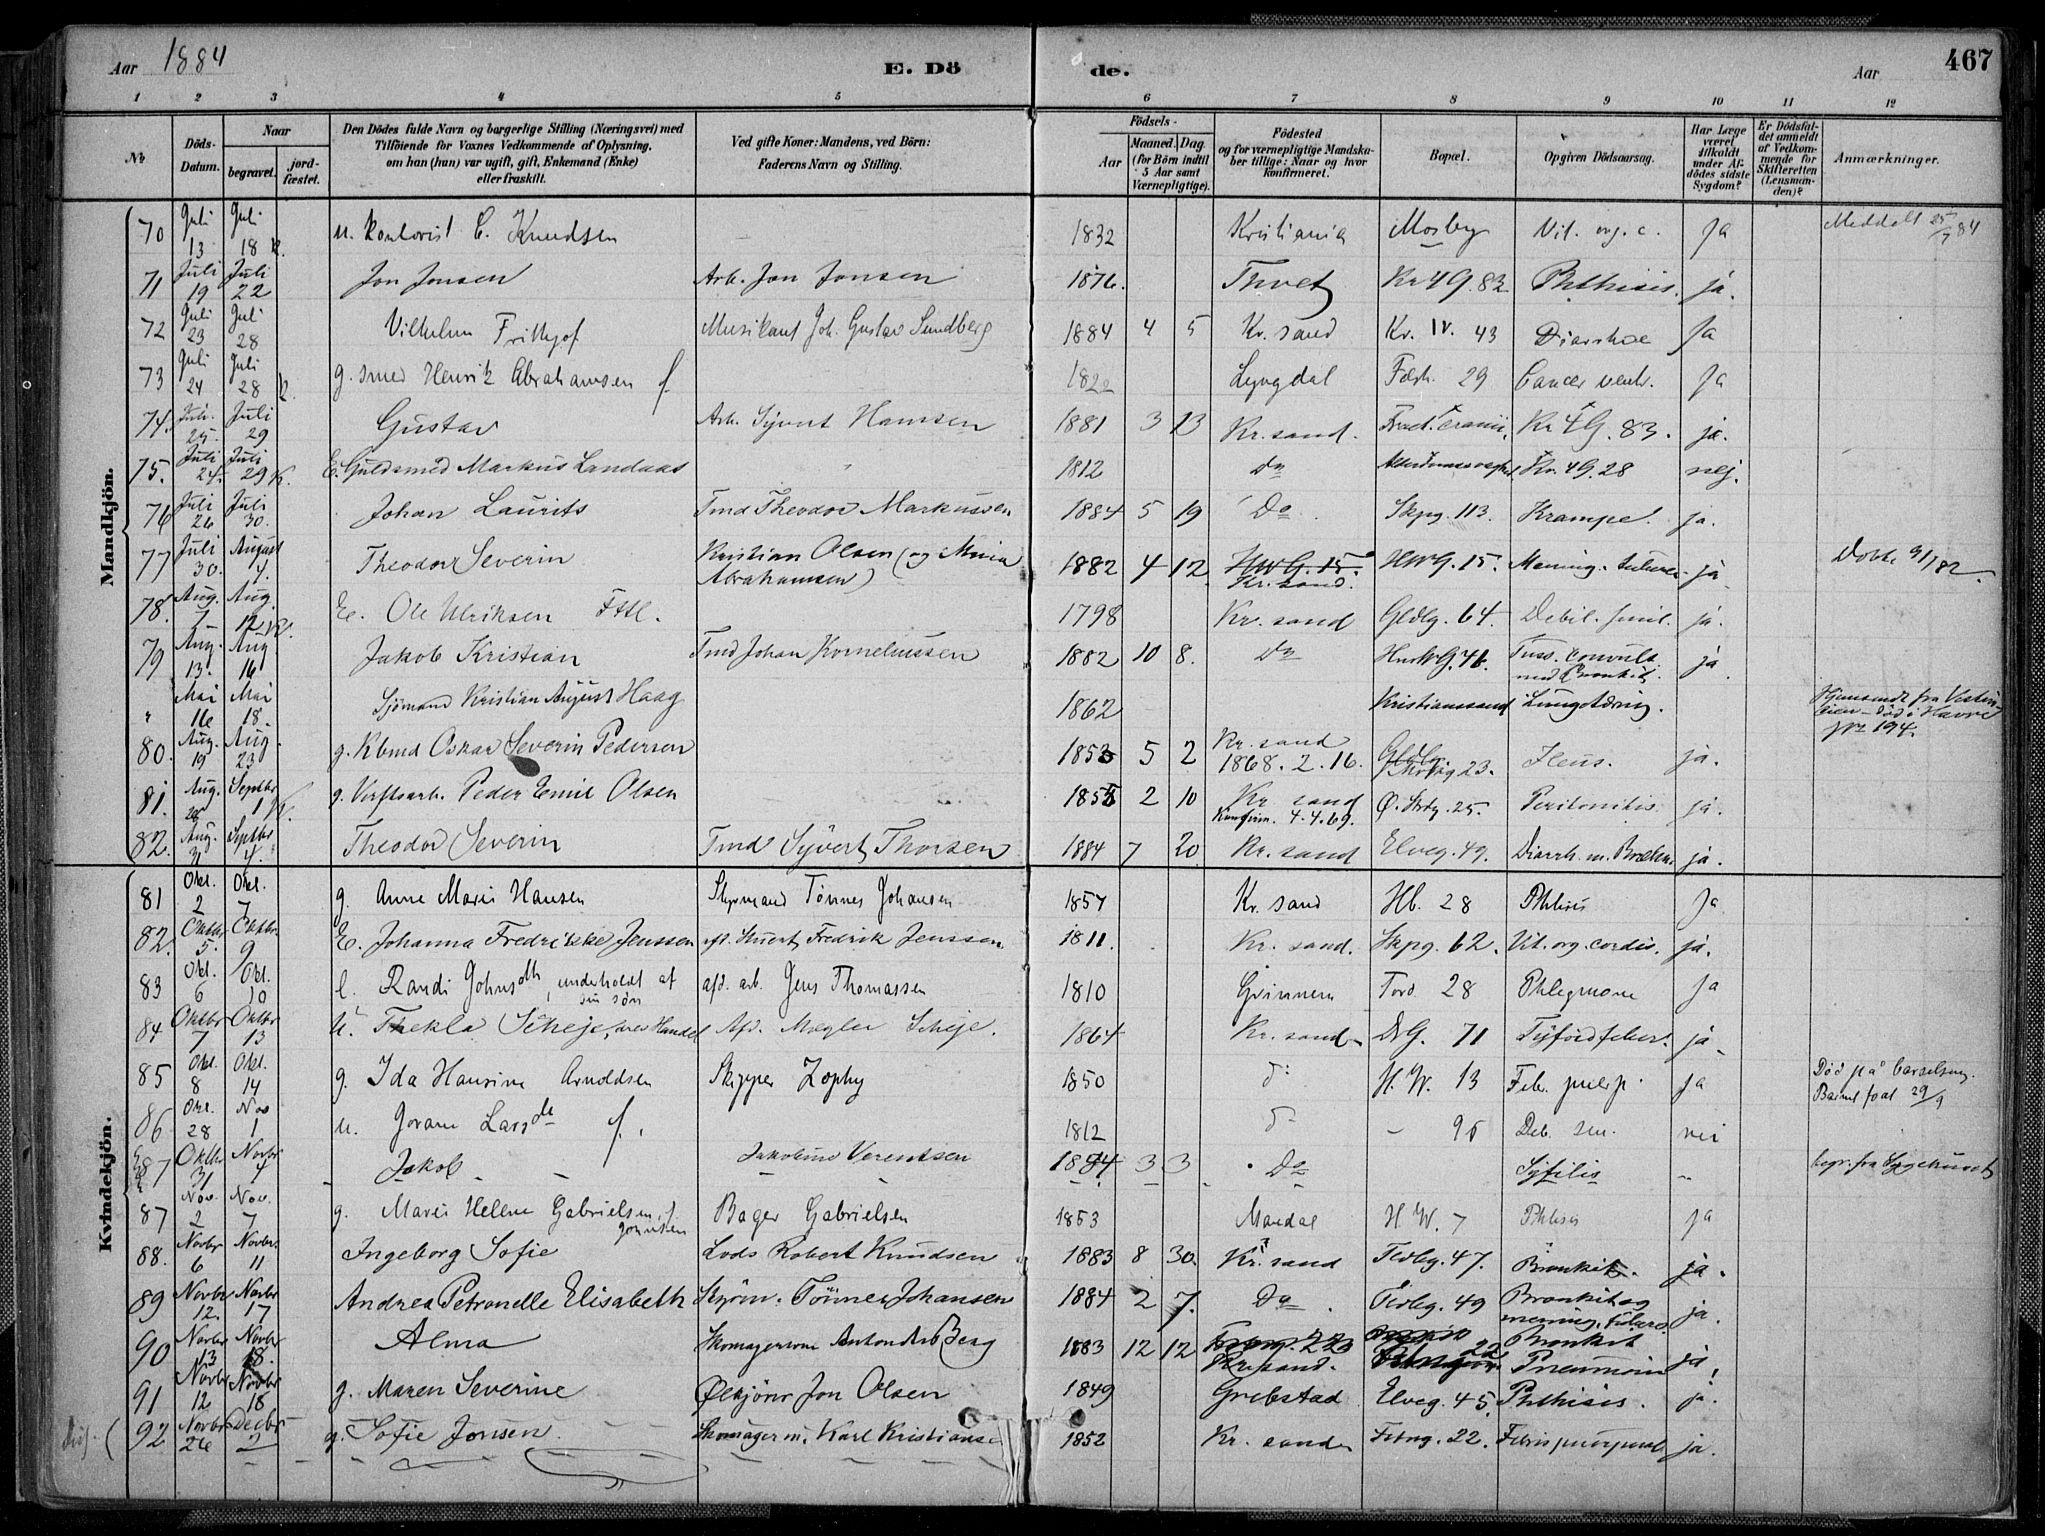 Aar 1884 E. Dö de. Aar 467
1 2 3 4 5 6 7 8 9 10 11 12
No Döds-Datum. Naar begravet. jord-fæstet.
Den Dödes fulde Navn og borgerlige Stilling (Næringsvei) med Tilföiende for Voxnes Vedkommende af Oplysning, om han (hun) var ugift, gift, Enkemand (Enke) eller fraskilt.
Ved gifte Koner: Mandens, ved Börn: Faderens Navn og Stilling.
Födsels- Aar Maaned. Dag. (for Börn indtil 5 Aar samt Værnepligtige).
Födested og for værnepligtige Mandskaber tillige: Naar og hvor Konfirmeret.
Bopæl.
Opgiven Dödsaarsag.
Har Læge været tilkaldt under Afdödes sidste Sygdom?
Er Dödsfaldet anmeldt af Vedkommende for Skifteretten (Lensmanden)?
Anmærkninger.
Mandkjön.
70 Juli 13 Juli 18 k. u. Kontorist C. Knudsen 1832 Kristiania Mosby Vit. org. c. Ja Meddelt 25/7 84
71 Juli 19 Juli 22 Jon Jonsen Arb. Jon Jonsen 1876. Thvet Kr 4G. 82 Phthisis. ja.
72 Juli 23 Juli 28 Vilhelm Frithjof Musikant Joh. Gustav Sundberg 1884 4 5 Kr. sand Kr. IV. 43 Diarrhoe Ja
73 Juli 24 Juli 28 k. g. smed Henrik Abrahamsen f. 1822 Lyngdal Fæst. 29 Cancer ventr. Ja
74. Juli 25. Juli 29 Gustav Arb. Syvert Hansen 1881 3 13 Kr. sand. Fract. cranii, Kr 4G. 83. ja.
75. Juli 24. Juli 29 k. E. Guldsmed Markus Landaas 1812 Do Alderdomssvaghed Kr. 4G. 28 nej.
76 Juli 26 Juli 30. Johan Laurits Tmd Theodor Markussen 1884 5 19 Do Skpg. 113. Krampe. ja.
77 Juli 30. August 4. Theodor Severin Kristian Olsen (og Maria Abrahamsen) 1882 4 12. HWG. 15. Kr. sand. HWG. 15. Mening. tuberc. ja
78. Aug. 7 Aug. 12 k. E. Ole Ulriksen Fttl. 1798 Kr. sand Gldlg. 64. Debil. senil. ja.
79 Aug. 13. Aug 16 Jakob Kristian Tmd Johan Korneliussen 1882 10 8. Do Tuss. convuls. med Bronkit. ja
" Mai 16 Mai 18. Sjömand Kristian August Haag 1862 Kristianssand Lungetæring. Hjemsendt fra Vestindien – död i Havre No 194.
80. Aug. 19 Aug. 23 g. Kbmd Oskar Severin Pedersen 1853 5 2 Kr. sand 1868. 2. 16. 23. Ileus. ja.
81. Aug. 28 Septbr 1 k. g. Verftsarb. Peder Emil Olsen 1854 2 10 Kr. sand Konfirm. 4.4.69. Ø. Strdg. 25. Peritonitis ja.
82. Aug. 31 Septbr 4. Theodor Severin Tmd Syvert Thorsen 1884 7 20 Kr. sand Elveg. 49. Diarrh. m. Bræk. ja.
Kvindekjön.
81 Okt. 2 Okt. 7 g. Anne Marie Hansen Styrmand Tönnes Johansen 1857 Kr. sand Hb. 28 Phthisis Ja
82. Oktbr 5. Oktbr 9 E. Johanna Fredrikke Jenssen afd. Fredrik Jenssen 1811. Kr. sand. Skpg. 62. Vit. org. cordis. ja.
83 Okt. 6 Okt. 10 e. Randi Johnsdtr, underholdt af sin søn afd. arb. Jens Thomassen 1810 Grimnem Tord. 28 Phlegmone Ja
84 Oktbr 7 Oktbr 13 u. Thekla Scheje, drev Handel Afd. Mægler Scheje. 1864 Kr. sand D.G. 71 Tyfoidfeber. ja
85 Okt. 8 Okt. 14 g. Ida Hansine Arnoldsen Skipper Zophy 1850 do H. W. 13 Feb. puerp. ja Död på barselseng. Barnet födt 29/9
86 Okt. 28 Nov 1 u. Jorane Larsdtr f. 1812 do – 95 Deb. sen. nei
87 Oktbr 31 Novbr 4 Jakob Jakobine Verentsen 1884 3 3 Do Syfilis begr. fra Sygehuset
87 Nov. 2 Nov. 7 g. Marie Helene Gabrielsen, f. Johnsen Bager Gabrielsen 1853 Mandal H W. 7 Phthisis ja
88. Novbr 6 Novbr. 11 Ingeborg Sofie Lods Robert Knudsen 1883 8 30. Kr. sand Tldbg. 47. Bronkit. ja.
89 Novbr 12. Novbr 17 Andrea Petronelle Elisabeth Styrm. Tönnes Johansen 1884 2 7. Do. Tldbg. 49 Bronkit og mening. tuberc. ja.
90 Novbr 13 Novbr 18. Alma Skomagersvend Anton Berg 1883 12 12 Kr. sand. 22 Bronkit Pneumoni ja.
91 Novbr 12 Novbr 18 g. Maren Severine Ølkjører Jon Olsen 1849 Grebstad Elveg. 45. Phthisis. ja.
92 Novbr 26 Decbr 2 g. Sofie Jonsen. Skomagerm. Karl Kristiansen 1852 Kr. sander Festng. 22. Febris puerperal ja.